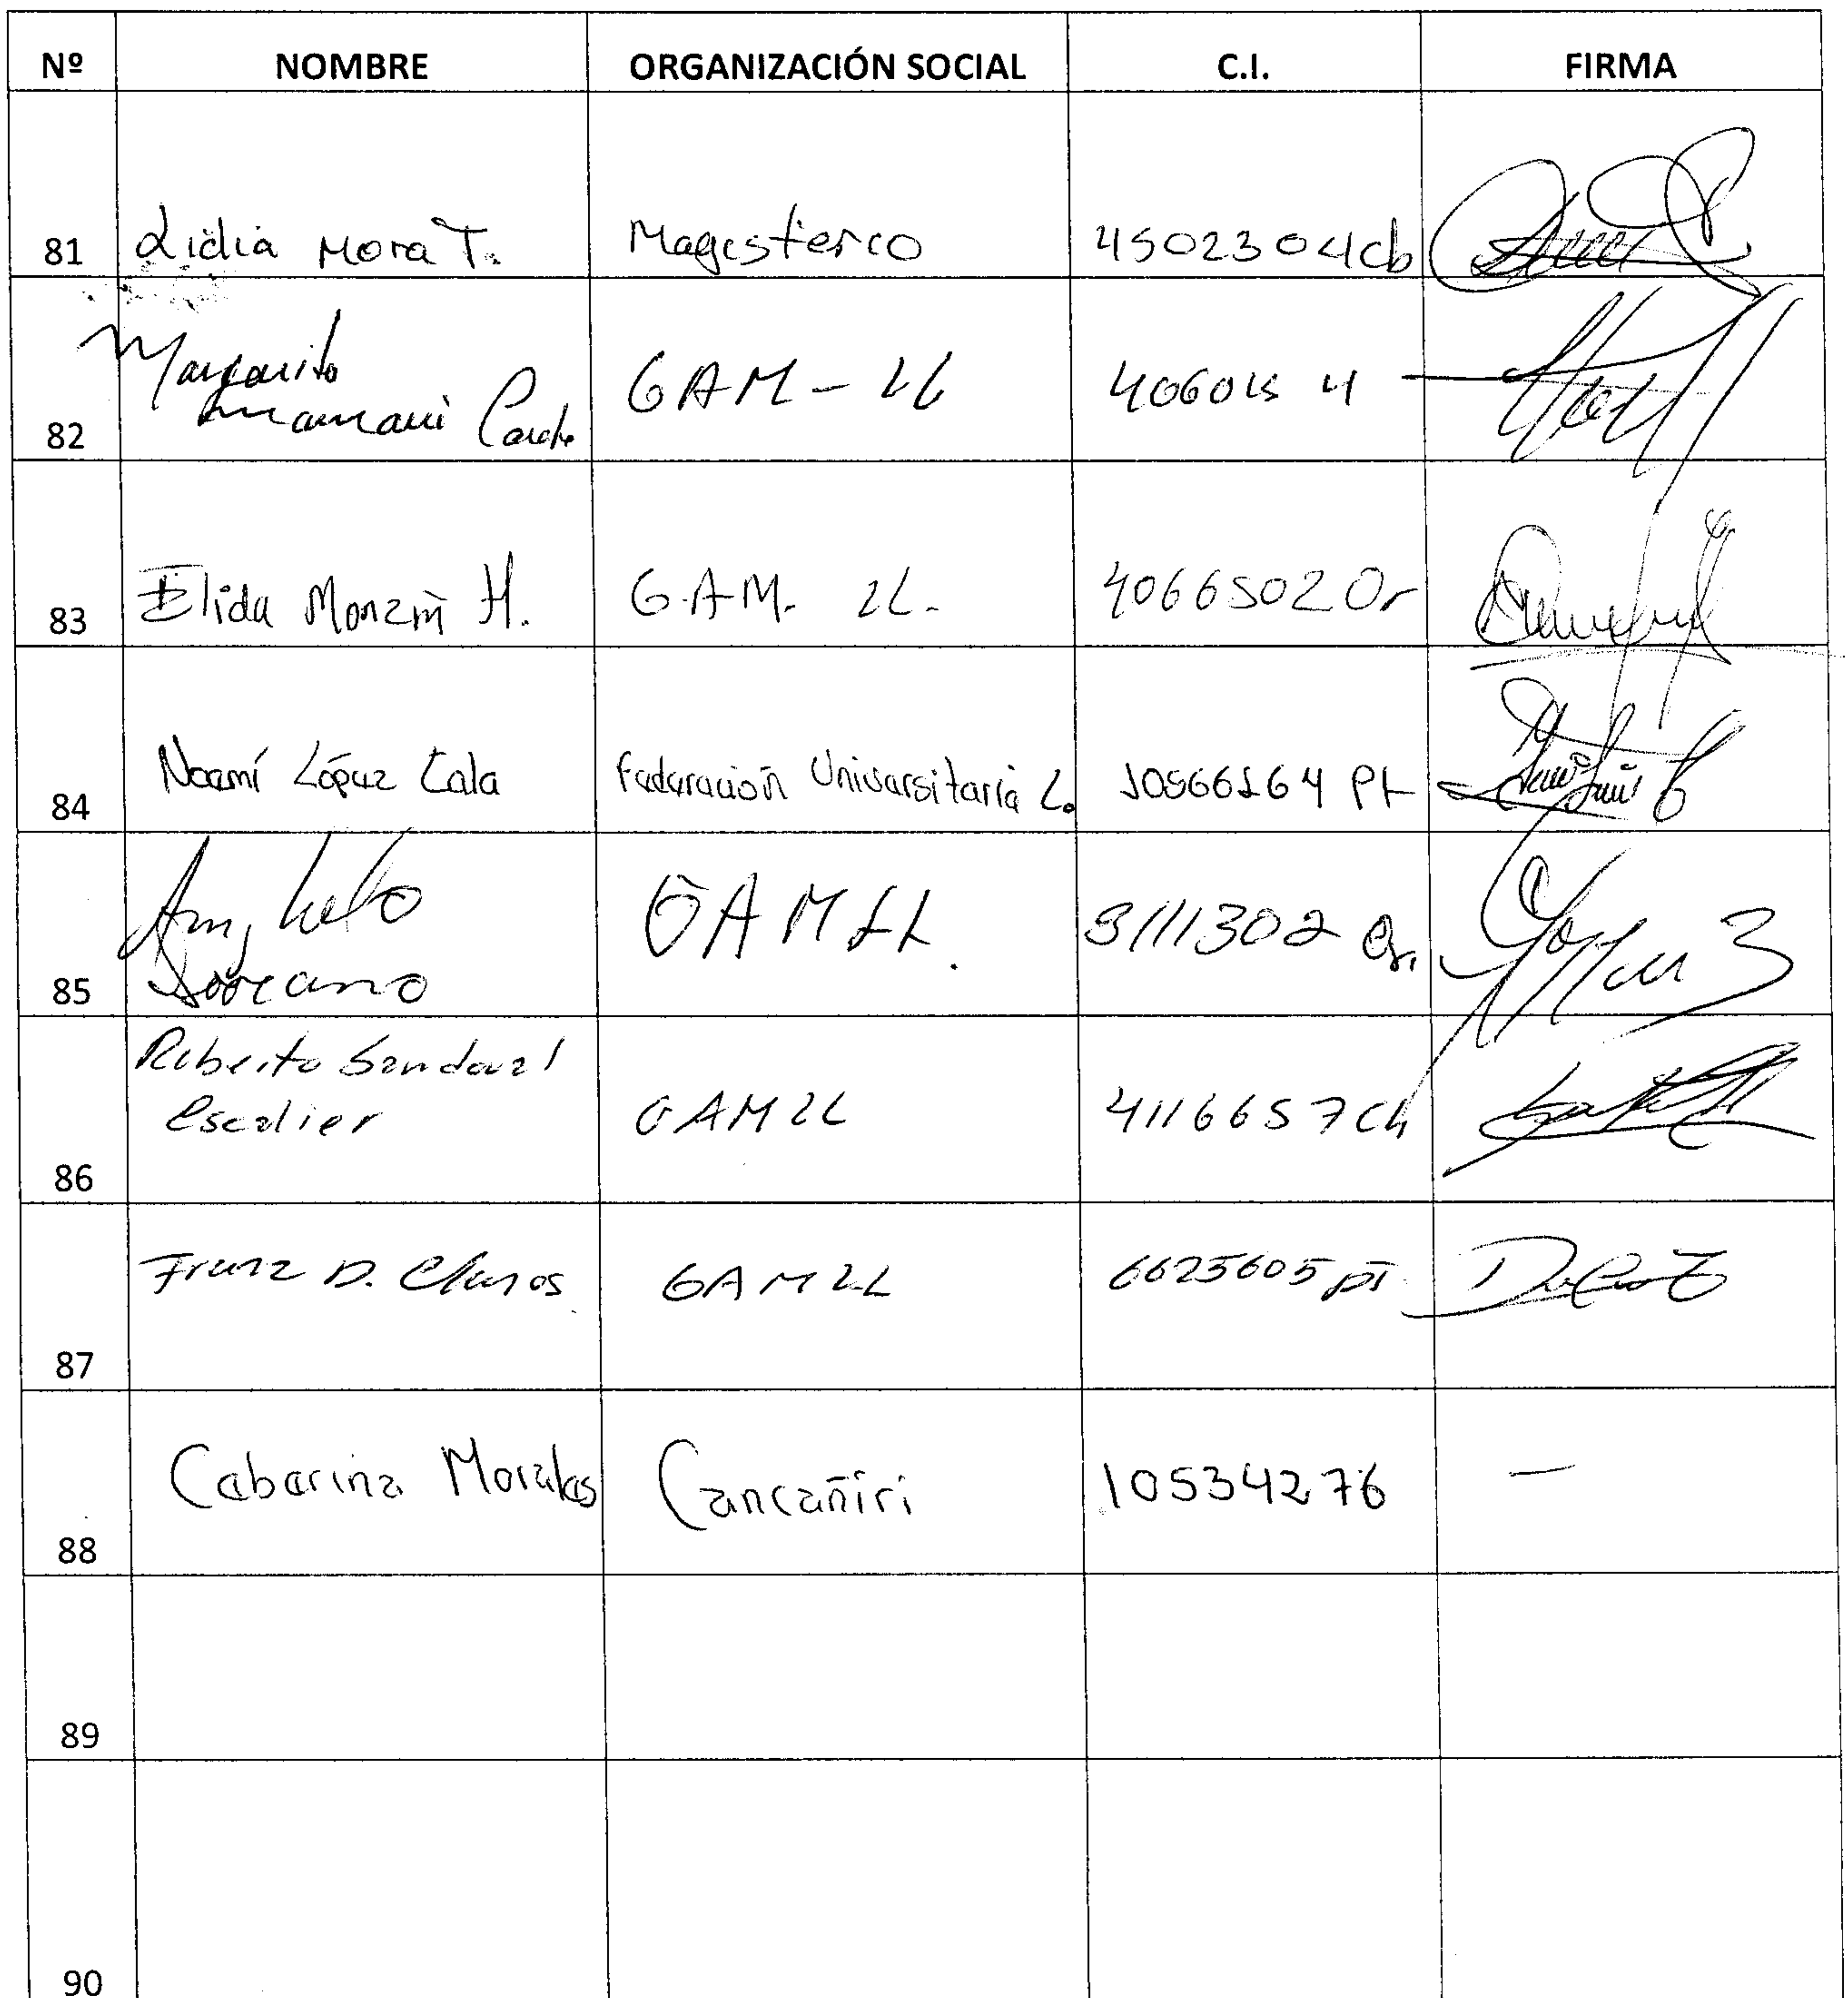 Nº NOMBRE ORGANIZACIÓN SOCIAL C.I. FIRMA
81 Lidia Mora T. Magisterio 4502304cb
Margarito
82 Mamani GAM - LL
83 Elida Monzón H. G.A.M. LL. 4066502 Or
84 Noemí López Cala Federación Universitaria L. 10566164 Pt
85 Soreano GAMLL. 3111302 Or.
Roberto Sandoval
Escalier GAMLL 4116657 Ch
86
Franz D. Claros GAMLL 6625605 pt
87
Cabarina Morales Cancañiri 10534276 —
88
89
90